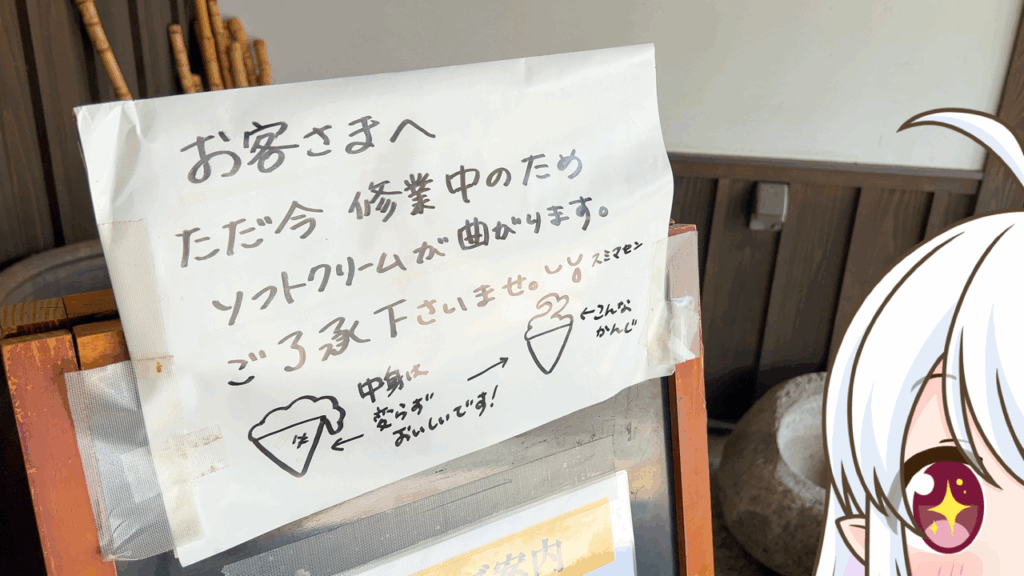 お客さまへ
ただ今 修業中のため
ソフトクリームが曲がります。
ご了承下さいませ。
スミマセン
←こんな
かんじ
中身は
変らず
おいしいです!
ご案内